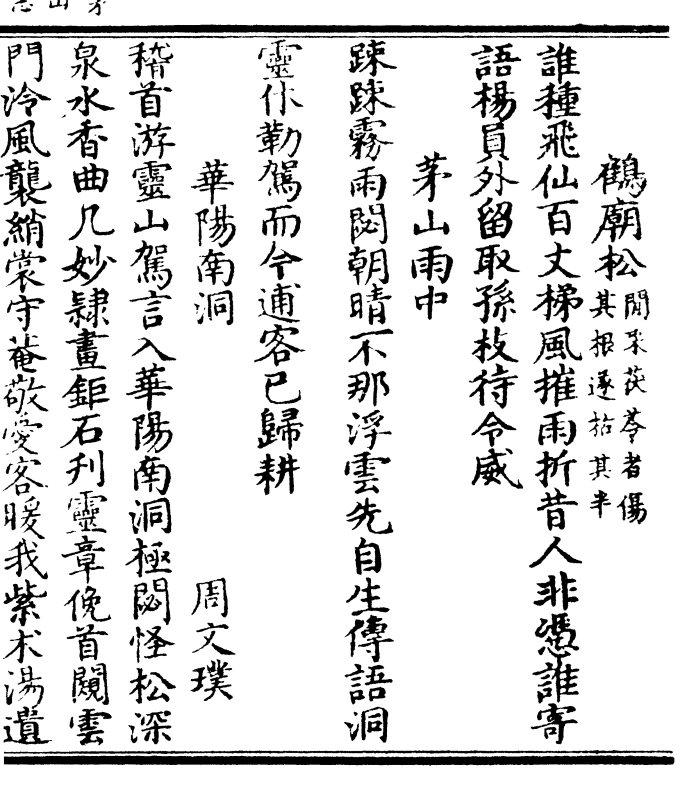 鶴廟松聞采茯苓者傷其根遂枯其半
誰種飛仙百丈梯風摧雨折昔人非憑誰寄
語楊員外留取孫枝待令威
茅山雨中
踈踈霧雨閟朝晴不那浮雲先自生傳語洞
靈休勒駕而今逋客已歸耕
華陽南洞 周文璞
稽首游靈山駕言入華陽南洞極閟怪松深
泉水香曲几妙隸畫鉅石刋靈章俛首闚雲
門泠風襲綃裳守菴敬愛客暖我紫术湯遺